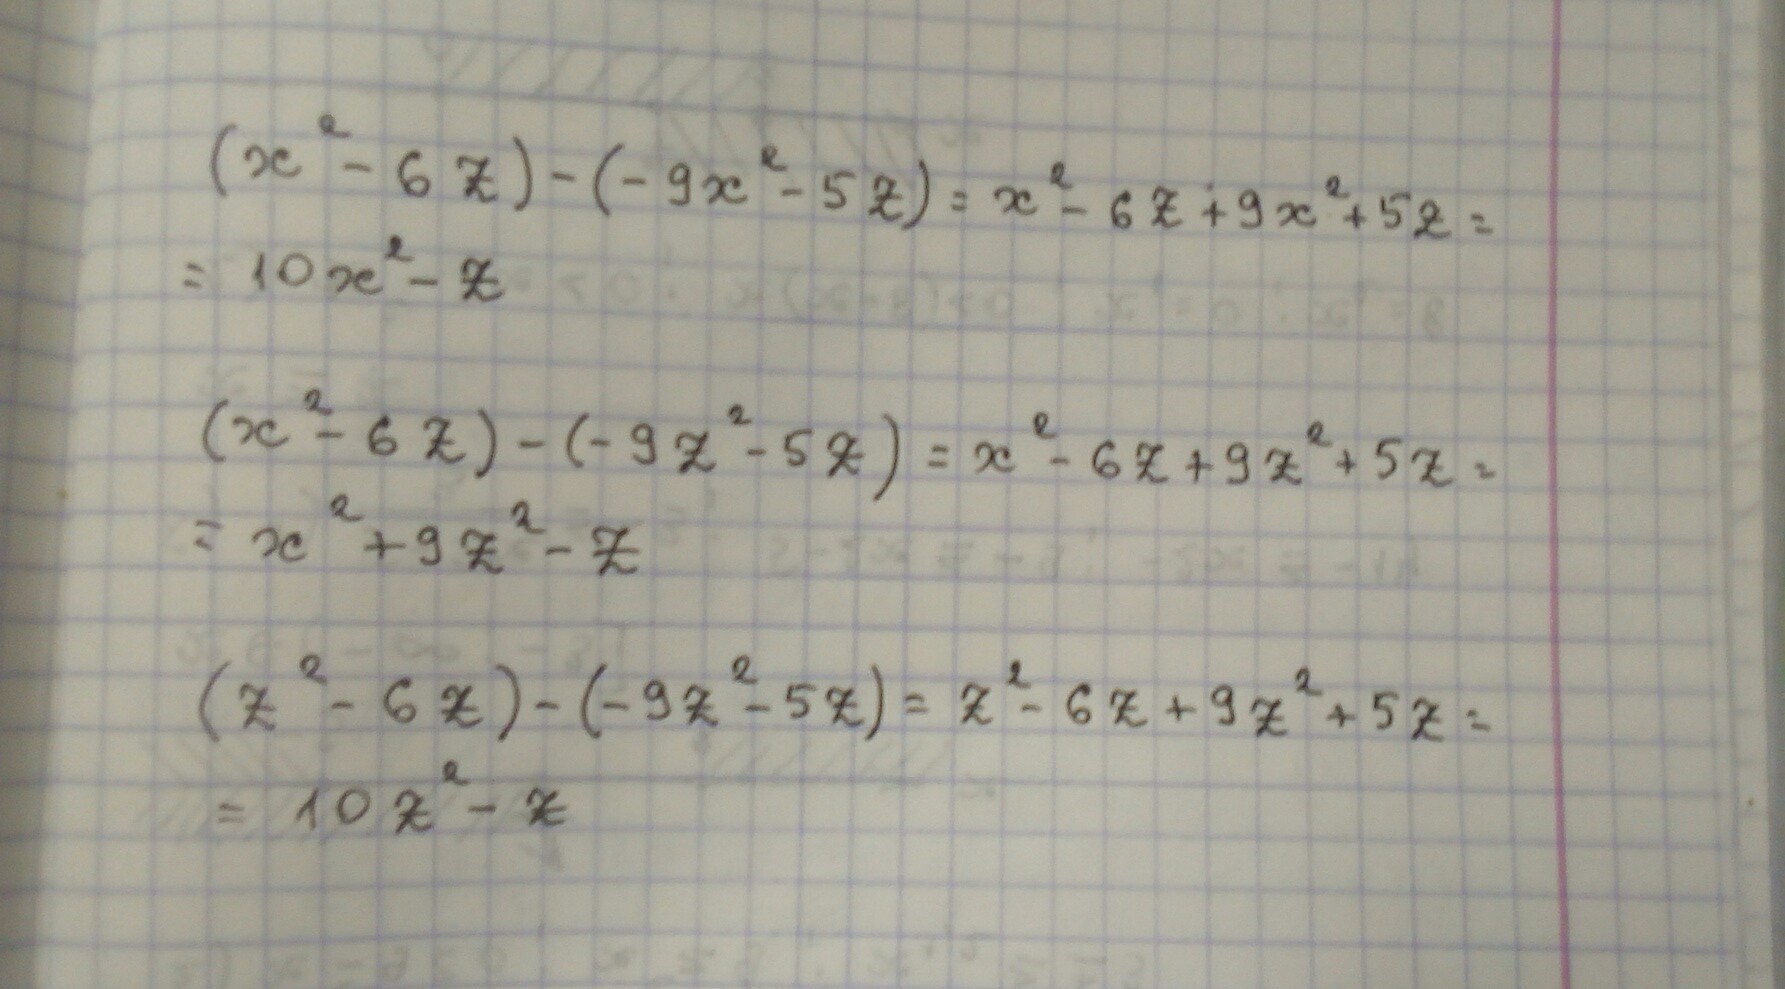 (x² - 6z) - (-9x² - 5z) = x² - 6z + 9x² + 5z =
= 10x² - z
(x² - 6z) - (-9z² - 5z) = x² - 6z + 9z² + 5z =
= x² + 9z² - z
(z² - 6z) - (-9z² - 5z) = z² - 6z + 9z² + 5z =
= 10z² - z